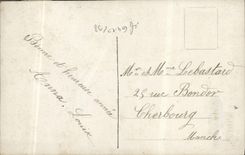 Bonne et heureuse année
Emma, Louis
Mr et Mme Lebastard
25 rue Bondor
Cherbourg
Manche